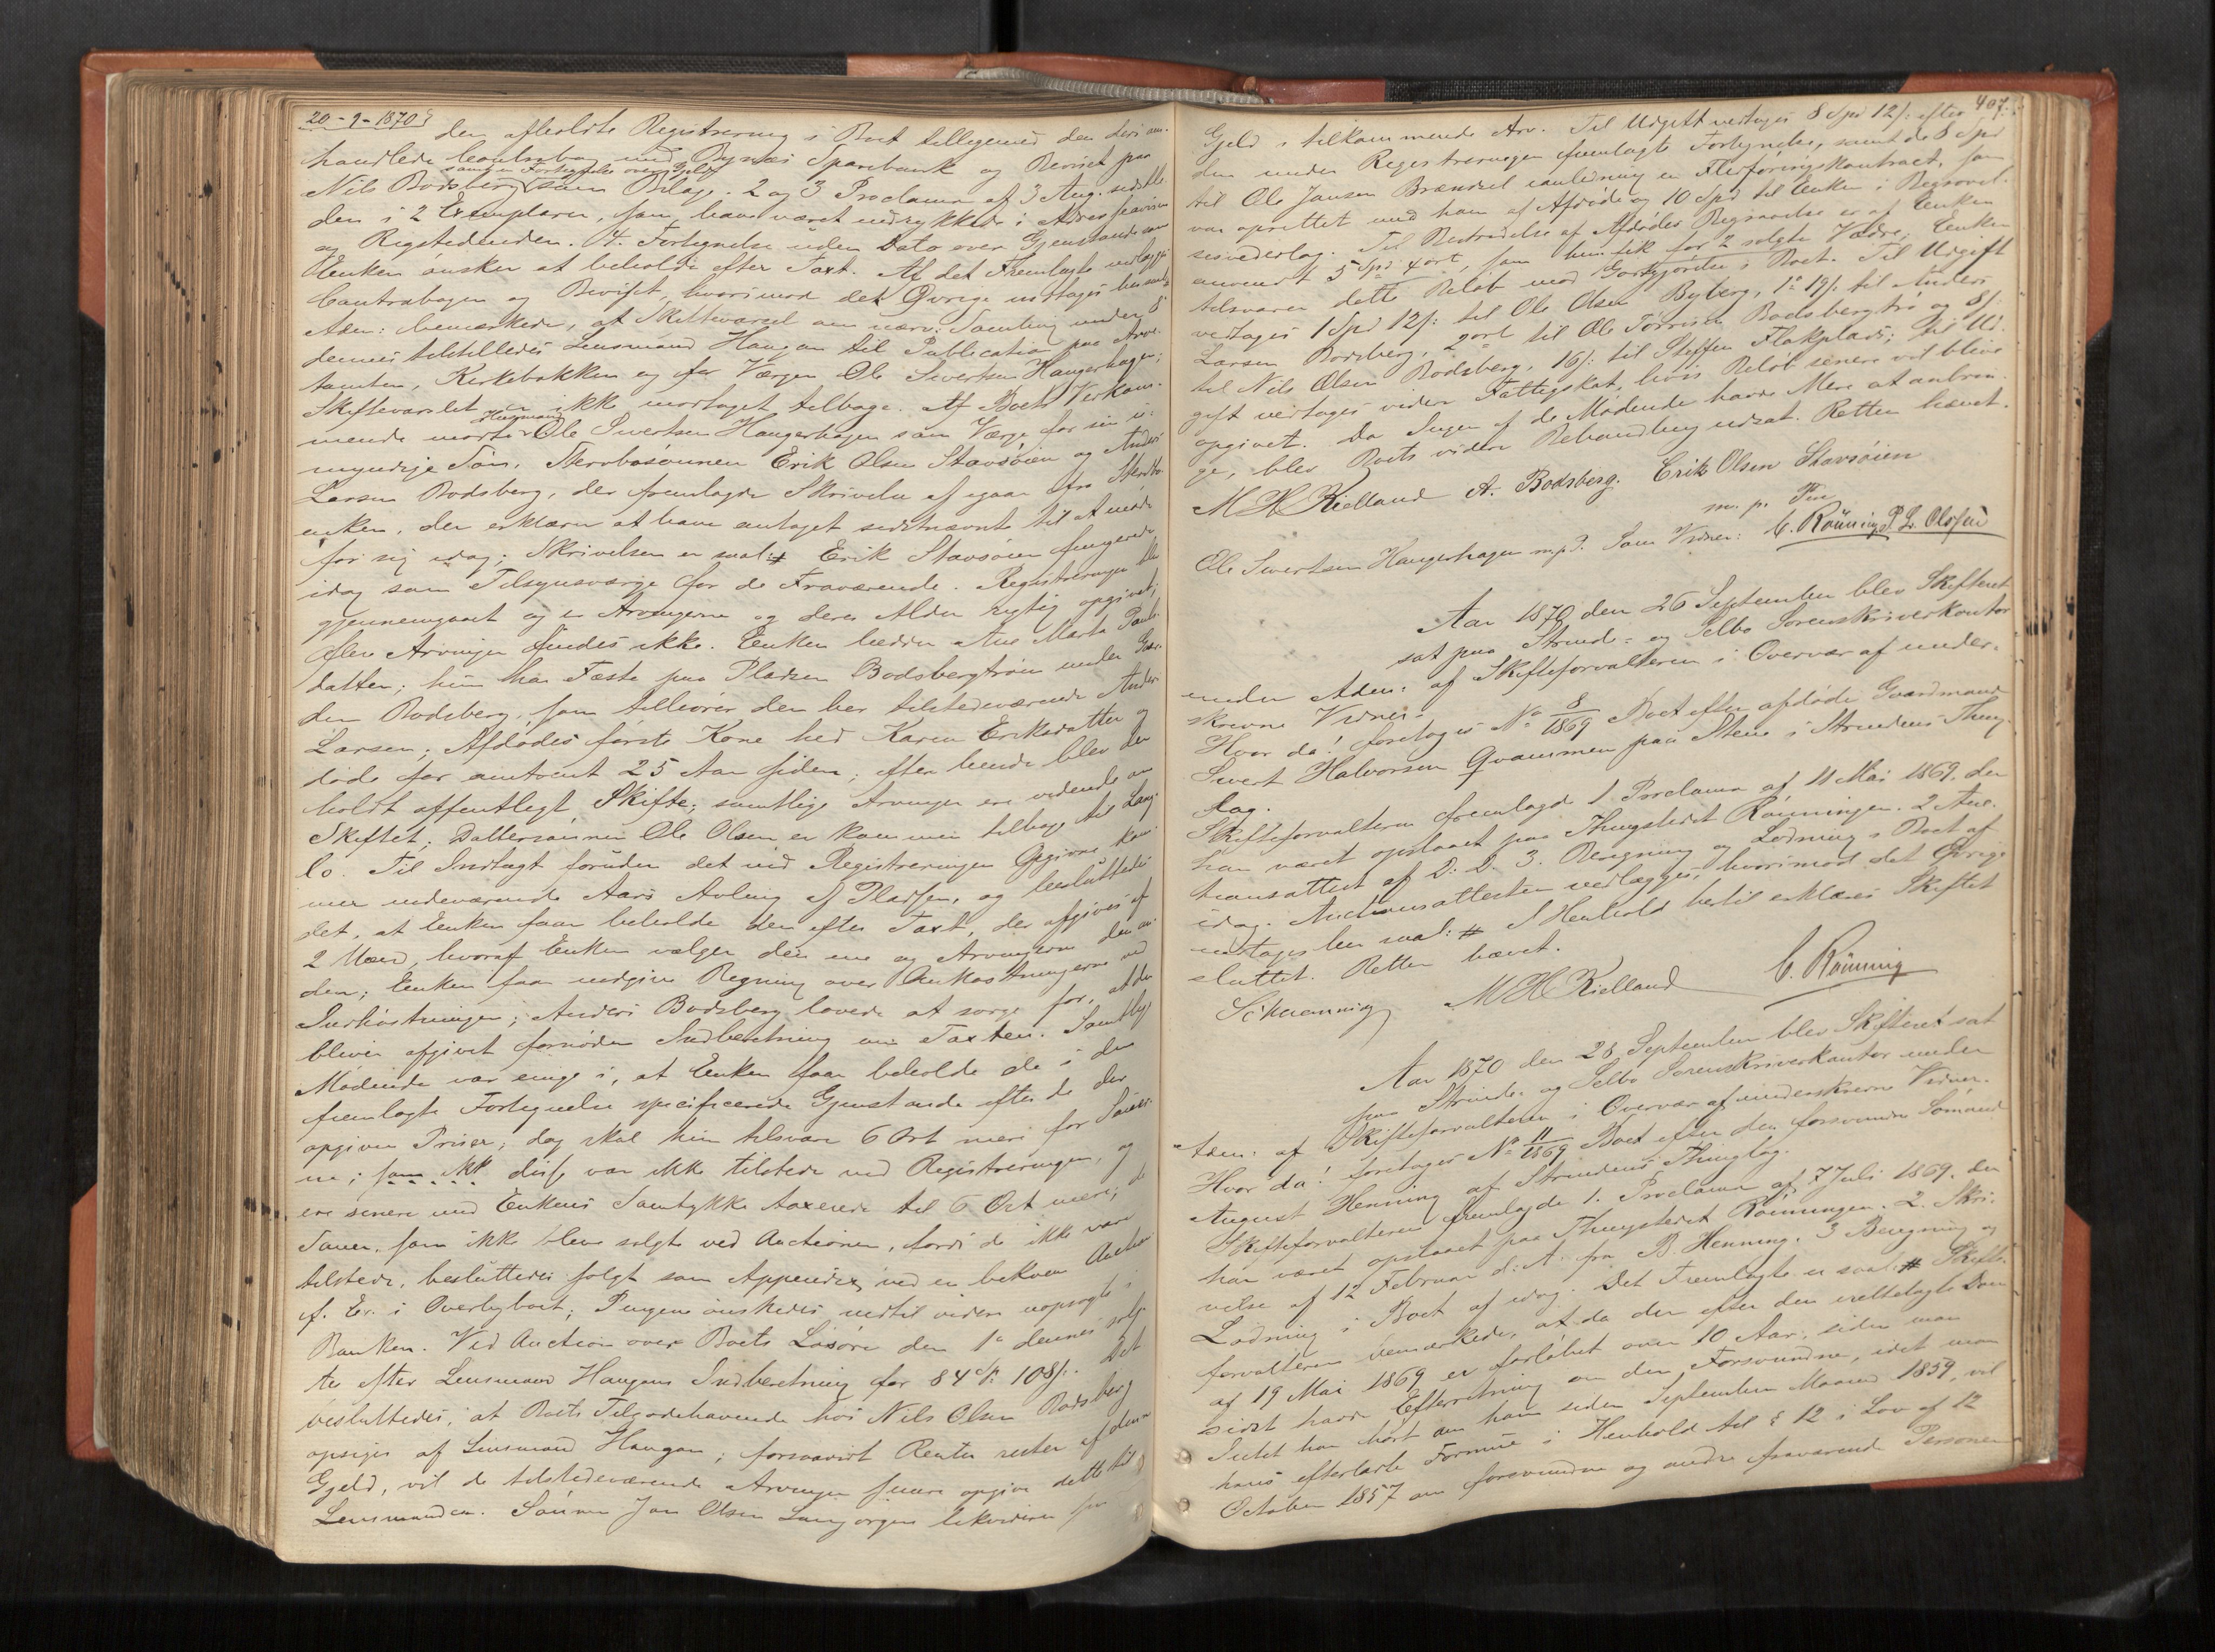 20-9-1870
den afholdte Registrering i Boet tillegemed den deri om-
handlede Contrabog med Bynæs Sparebank og Beviset paa
samt en Fortegnelse over Gjeld
Nils Bodsberg som Bilag. 2 og 3 Proclama af 3 Aug. sidstl.
den i 2 Exemplarer, som have været indrykkede i Adresseavisen
og Rigstidenden. 4. Fortegnelse uden Dato over Gjenstande som
Enken ønsker at beholde efter Taxt. Af det Fremlagte vedlægges
Contrabogen og Beviset, hvorimod det Øvrige indtages her saal.
Adm: bemærkede, at Skiftevarsel om nærv: Samling under 8
dennes tilstilledes Lensmand Haugan til Publication paa Arve-
tomten, Kirkebakken og for Værgen Ole Sivertsen Haugerhagen;
Skiftevarslet er ikke modtaget tilbage. Af Boets Vedkom-
Huusmand
mende mødte Ole Sivertsen Haugerhagen som Værge for sin u-
myndige Søn, Stervbosønnen Erik Olsen Stavsøien og Anders
Larsen Bodsberg, der fremlagde Skrivelse af igaar fra Stervbo-
enken, der erklærer at have antaget sidstnævnte til at møde
for sig idag; Skrivelsen er saal: # Erik Stavsøien fungerede
idag som Tilsynsværge for de Fraværende. Registreringen blev
gjennemgaaet og er Arvingerne og deres Alder rigtig opgivet;
flere Arvinger findes ikke. Enken hedder Ane Marta Pauls-
datter; hun har Fæste paa Pladsen Bodsbergtrøen under Gaar-
den Bodsberg, som tilhører den her tilstedeværende Anders
Larsen; Afdødes første Kone hed Karen Eriksdatter og
døde for omtrent 25 Aar siden; efter hende blev der
holdt offentligt Skifte; samtlige Arvinger ere vidende om
Skiftet; Dattersønnen Ole Olsen er kommen tilbage til Lang-
lo. Til Indtægt foruden det ved Registreringen Opgivne kom-
mer indeværende Aars Avling af Pladsen, og besluttedes
det, at Enken faar beholde den efter Taxt, der afgives af
2 Mænd, hvoraf Enken vælger den ene og Arvingerne den an-
den; Enken faar indgive Regning over Omkostningerne ved
Indhøstningen; Anders Bodsberg lovede at sørge for, at der
bliver afgivet fornøden Indberetning om Taxten. Samtlige
Mødende var enige i, at Enken faar beholde de i den
fremlagte Fortegnelse specificerede Gjenstande efter de der
opgivne Priser; dog skal hun tilsvare 6 Ort mere for Sauer-
ne; som ikke disse var ikke tilstede ved Registreringen, og
ere senere med Enkens Samtykke taxerede til 6 Ort mere; de
Sauer, som ikke bleve solgte ved Auctionen, fordi de ikke vare
tilstede, besluttedes solgt som Appendix ved en bekvem Auction
f. Ex. i Overlyboet; Pengene ønskedes indtil videre uopsagte i
Banken. Ved Auction over Boets Løsøre den 1ste dennes solg-
tes efter Lensmand Haugans Indberetning for 84 Sp 108 s. Det
besluttedes, at Boets Tilgodehavende hos Nils Olsen Bodsberg
opsiges af Lensmand Haugan; forsaavidt Renter rester af denne
Gjeld, vil de tilstedeværende Arvinger senere opgive dette til
Lensmanden. Sønnen Jon Olsen Langørgen likviderer for
407.
Gjeld i tilkommende Arv. Til Udgift vedtages 8 Spd 12 s: efter
den under Registreringen fremlagte Fortegnelse, samt de 8 Spd
til Ole Jansen Brændsel i anledning en Flerføringskontract, som
var oprettet med ham af Afdøde og 10 Spd til Enken i Begravel-
sesvederlag. Til Bestridelse af Afdødes Begravelse er af Enken
anvendt 5 Spd 4 ort, som hun fik for 2 solgte Vædre; Enken
tilsvarer dette Beløb mod Godtgjørelse i Boet. Til Udgift
vedtages 1 Spd 12 s: til Ole Olsen Byberg, 1 o 19 s. til Anders
Larsen Bodsberg, 2 ort til Ole Tørrisen Bodsbergtrø og 8 s.
til Nils Olsen Bodsberg, 16 s: til Steffen Flakplads; til Ud-
gift vedtages videre Fattigskat, hvis Beløb senere vil blive
opgivet. Da Ingen af de Mødende havde Mere at anbrin-
ge, blev Boets videre Behandling udsat. Retten hævet.
M H Kielland A. Bodsberg. Erik Olsen Stavsøien
m. p. Pen
Ole Sivertsen Haugerhagen m. p. P. Som Vidner: C. Rønning P. L. Olssen
Aar 1870 den 26 September blev Skifteret
sat paa Strinde- og Selbo Sorenskriverkontor
under Adm: af Skifteforvalteren i Overvær af under-
skrevne Vidner.
Hvor da! foretoges No 8/1869 Boet efter afdøde Gaardmand
Sivert Halvorsen Qvammen paa Stene i Strindens Thing-
lag.
Skifteforvalteren fremlagde 1 Proclama af 11 Mai 1869, der
har været opslaaet paa Thingstedet Rønningen. 2 Auc-
tionsattest af D. D. 3. Beregning og Lodning i Boet af
idag. Auctionsattesten vedlægges, hvorimod det Øvrige
indtages her saal: # I Henhold hertil erklæres Skiftet
sluttet. Retten hævet.
M H Kielland C. Rønning
Aar 1870 den 28 September blev Skifteret sat
paa Strinde- og Selbo Sorenskriverkontor under
Adm: af Skifteforvalteren i Overvær af underskrevne Vidner.
Hvor da! foretoges No 11/1869 Boet efter den forsvundne Sømand
August Henning af Strindens Thinglag.
Skifteforvalteren fremlagde 1. Proclama af 7 Juli 1869, der
har været opslaaet paa Thingstedet Rønningen. 2. Skri-
velse af 12 Februar d: A. fra B. Henning. 3 Beregning og
Lodning i Boet af idag. Det Fremlagte er saal: # Skifte-
forvalteren bemærkede, at da der efter den irettelagte Dom
af 19 Mai 1869 er forløbet over 10 Aar, siden man
sidst havde Efterretning om den Forsvundne, idet man
Intet har hørt om ham siden September Maaned 1859, vil
hans efterladte Formue i Henhold til § 12 i Lov af 12
October 1857 om forsvundne og andre fraværende Personer